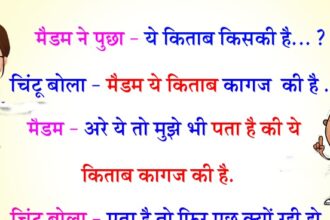 मैडम ने पुछा - ये किताब किसकी है... ?
चिंटू बोला - मैडम ये किताब कागज की है .
मैडम - अरे ये तो मुझे भी पता है की ये
किताब कागज की है.
चिंटू बोला - पता है तो फिर पूछ क्यों रही हो